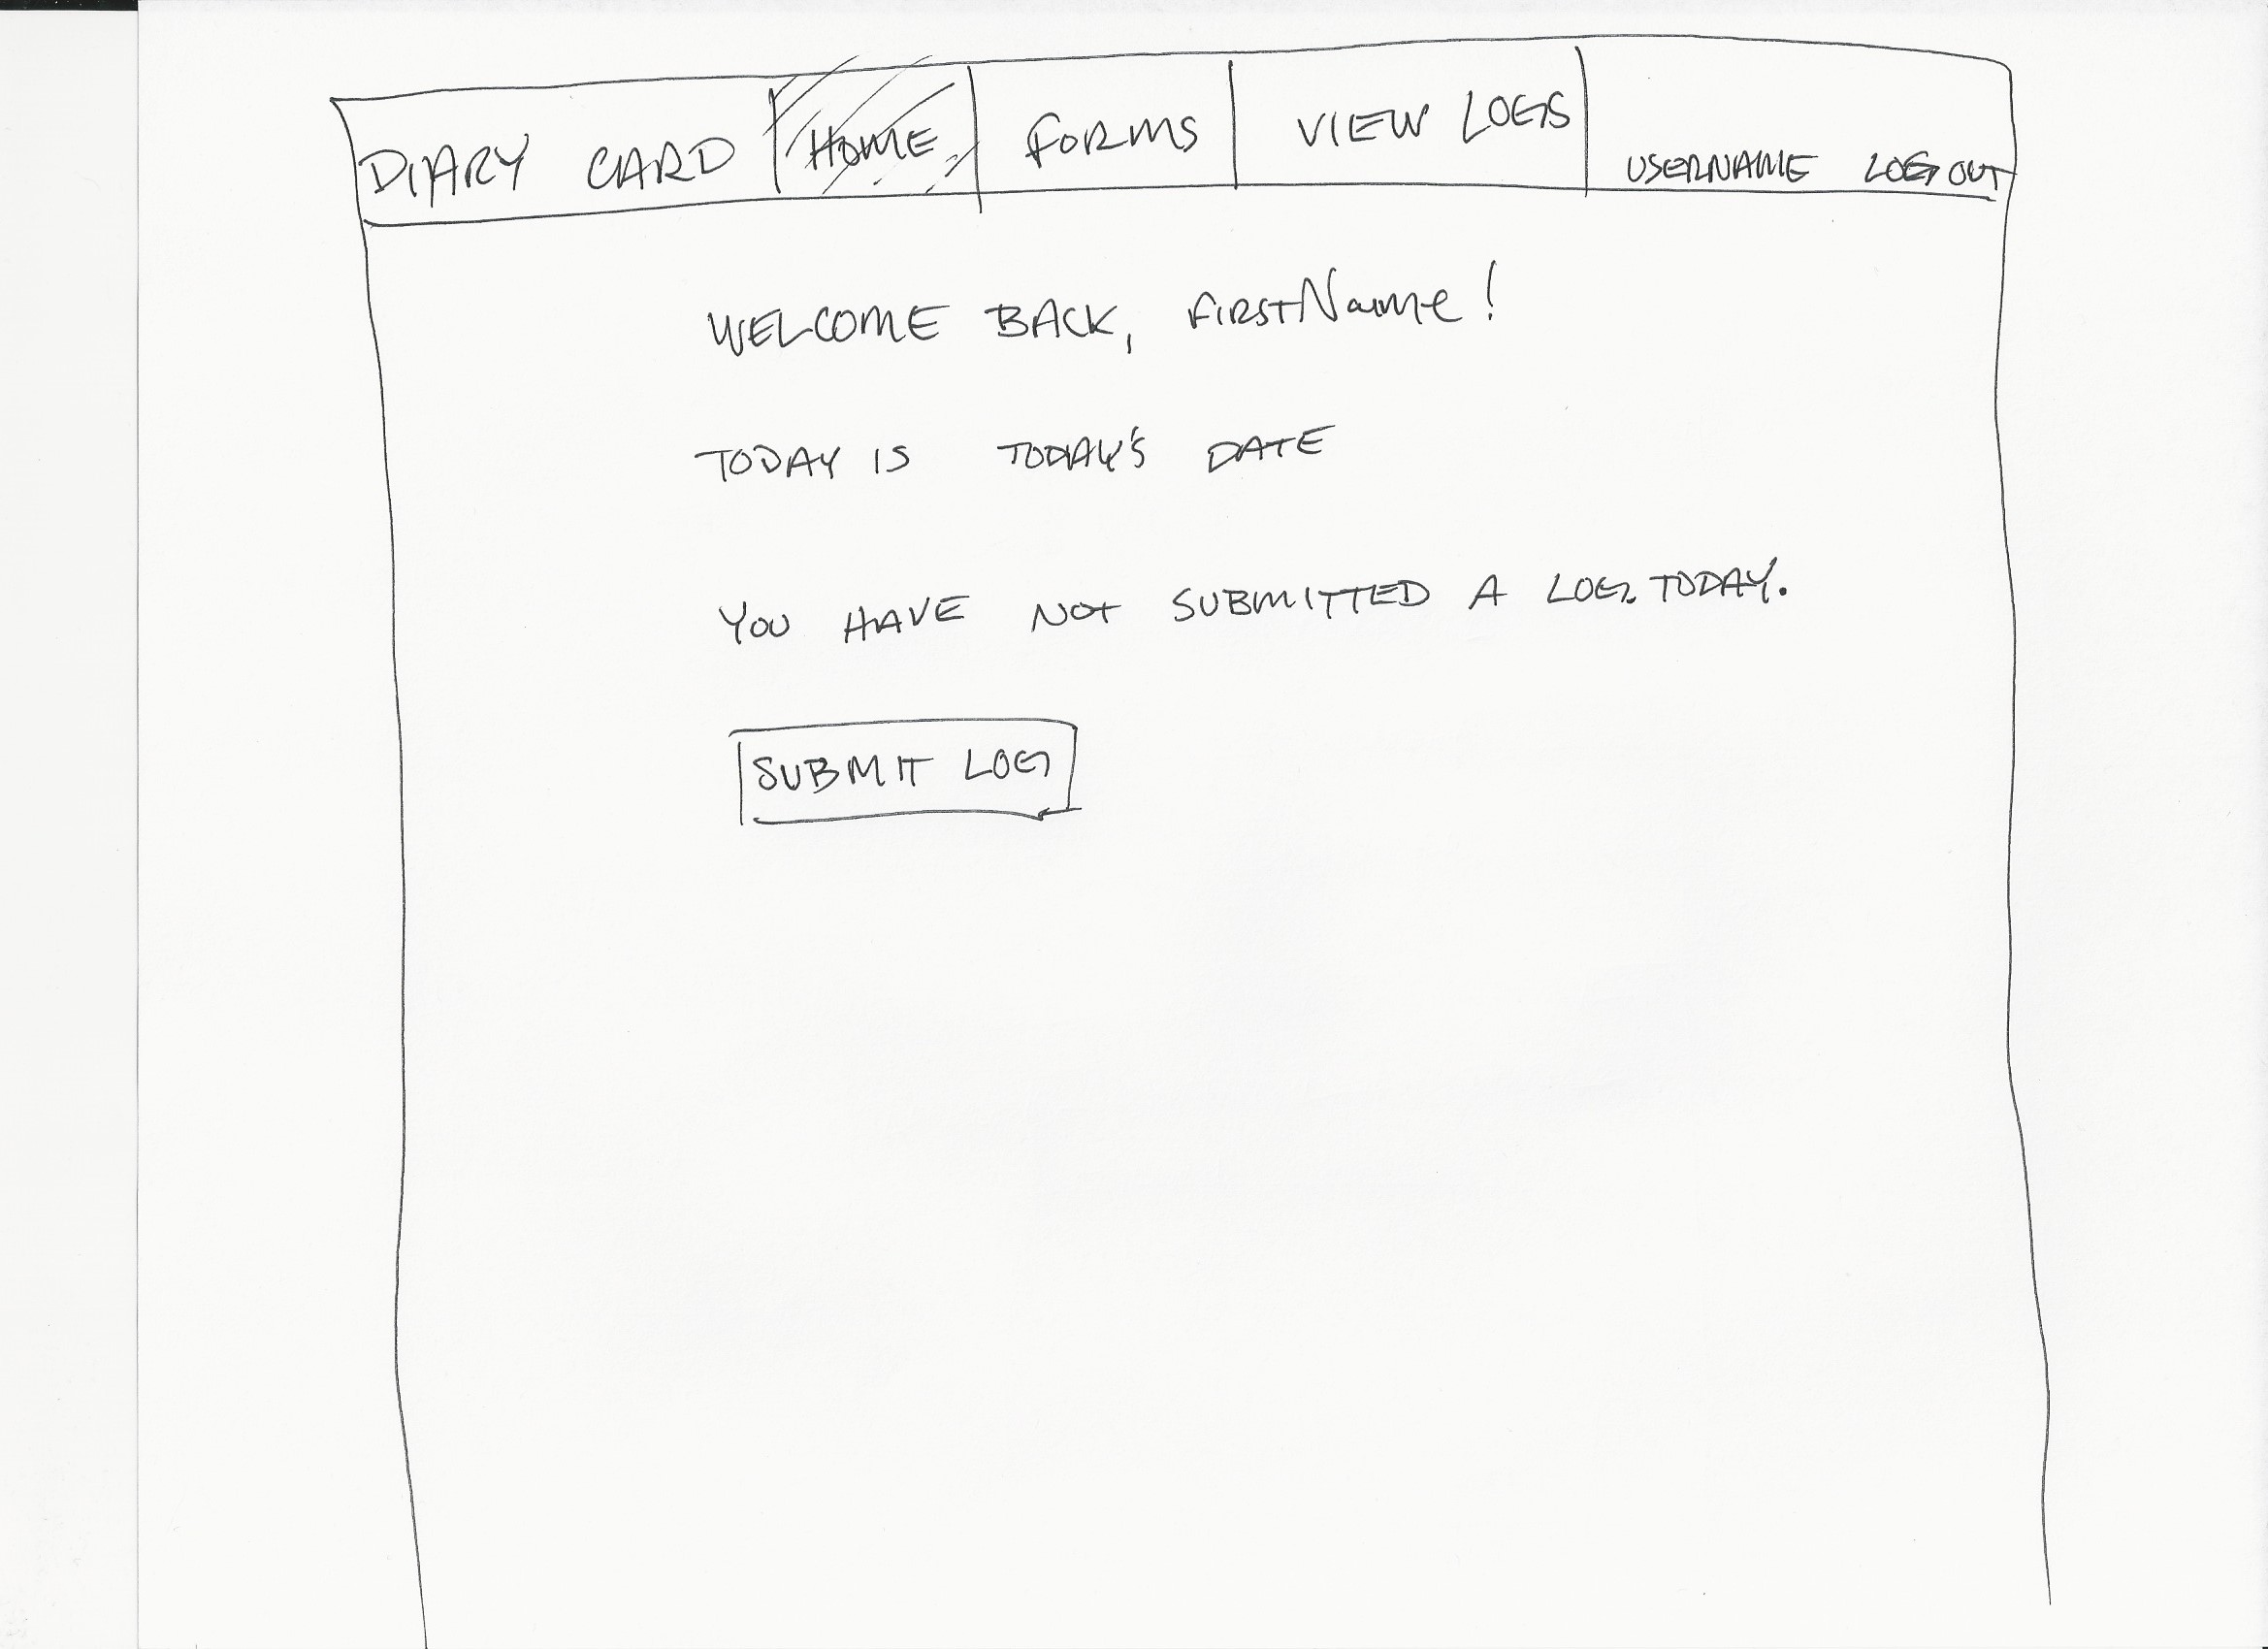 DIARY CARD HOME FORMS VIEW LOGS USERNAME LOG OUT
WELCOME BACK, FIRSTName!
TODAY IS TODAY'S DATE
YOU HAVE NOT SUBMITTED A LOG TODAY.
SUBMIT LOG